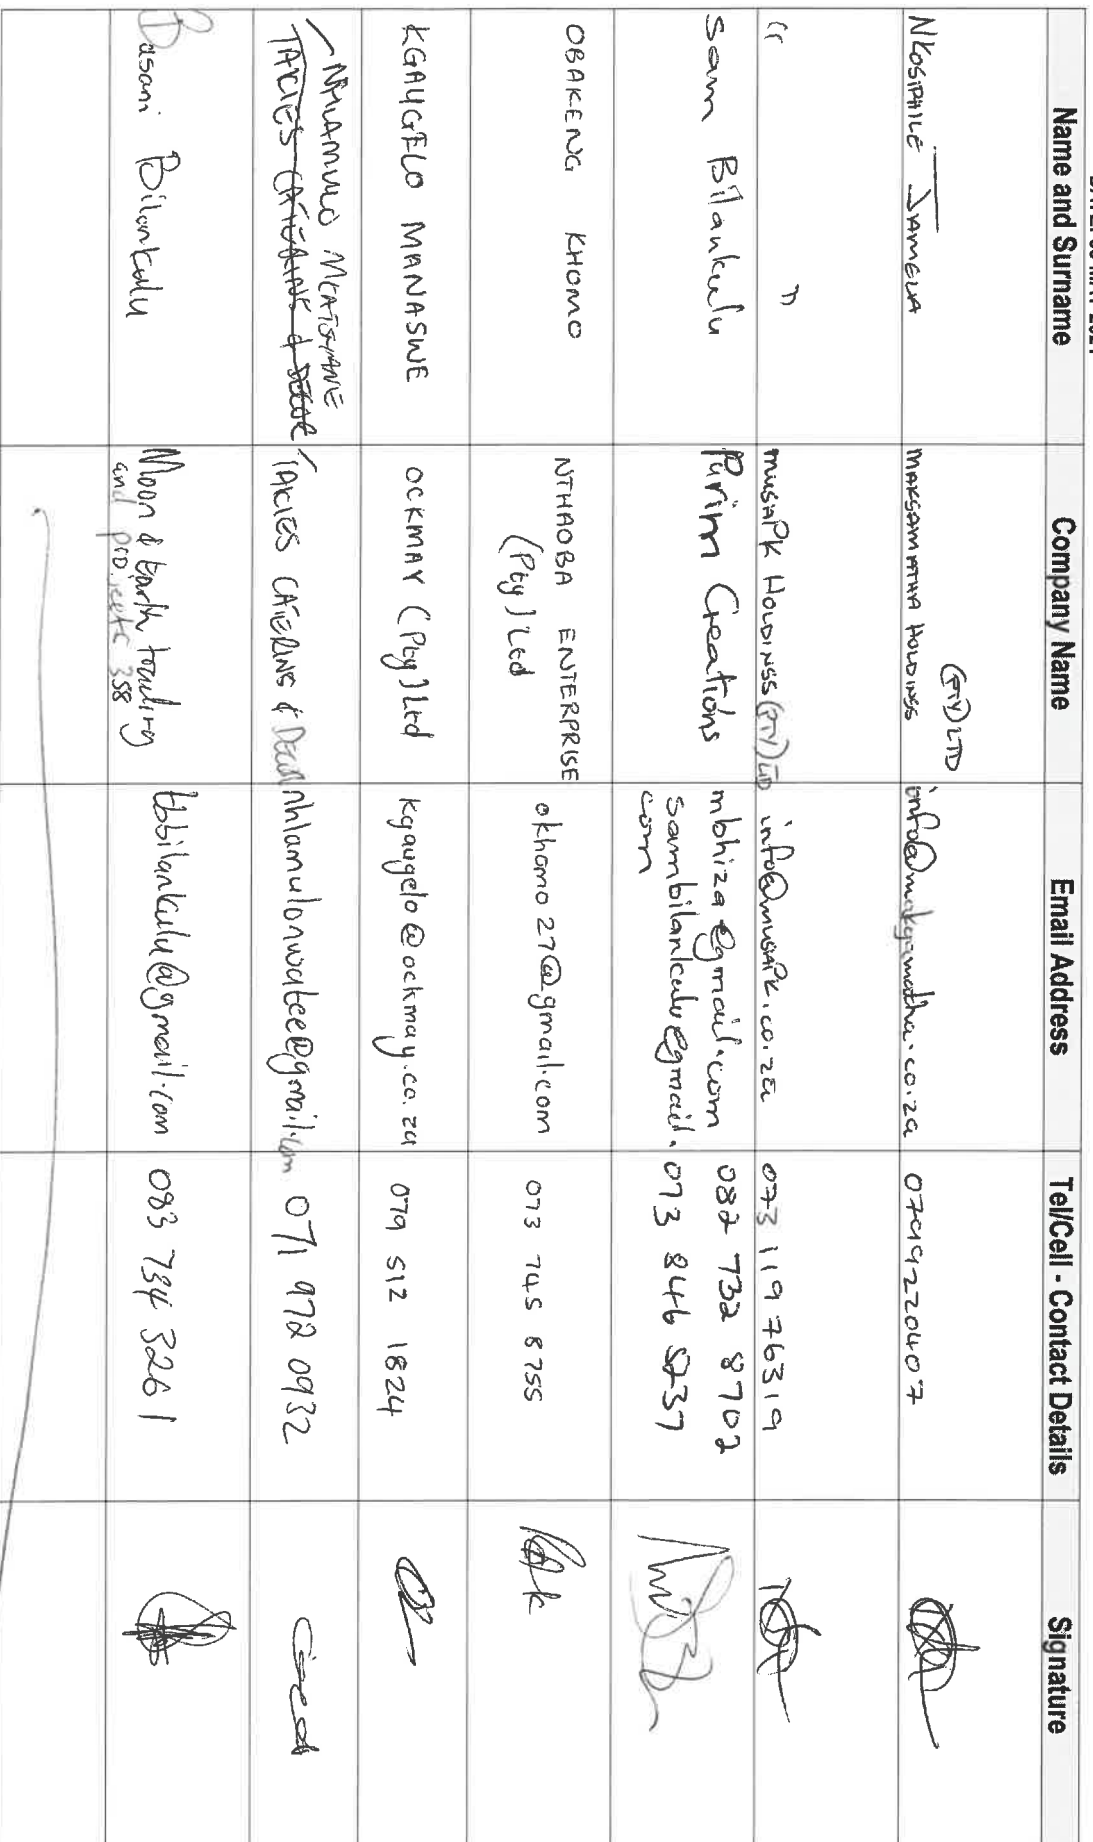 Name and Surname Company Name Email Address Tel/Cell - Contact Details Signature
NKOSIPHILE JAMELA MAKGAMATHA HOLDINGS (PTY) LTD info@makgamatha.co.za 0799220407
" " MUSAPK HOLDINGS (PTY) LTD info@musapk.co.za 073 119 76319
Sam Bilankulu Purim Creations mbhiza@gmail.com 082 732 8702
sambilankulu@gmail. 073 846 5237
com
OBAKENG KHOMO NTHAOBA ENTERPRISE okhomo27@gmail.com 073 745 8755
(Pty) Ltd
KGAUGELO MANASWE OCKMAY (Pty) Ltd kgaugelo@ockmay.co.za 079 512 1824
NHLAMULO
TAKIES CATERING & DECOR TAKIES CATERING & Decor nhlamulonwatee@gmail.com 071 972 0932
Basani Bilankulu Moon & Earth trading tbbilankulu@gmail.com 083 734 3261
and projects 358